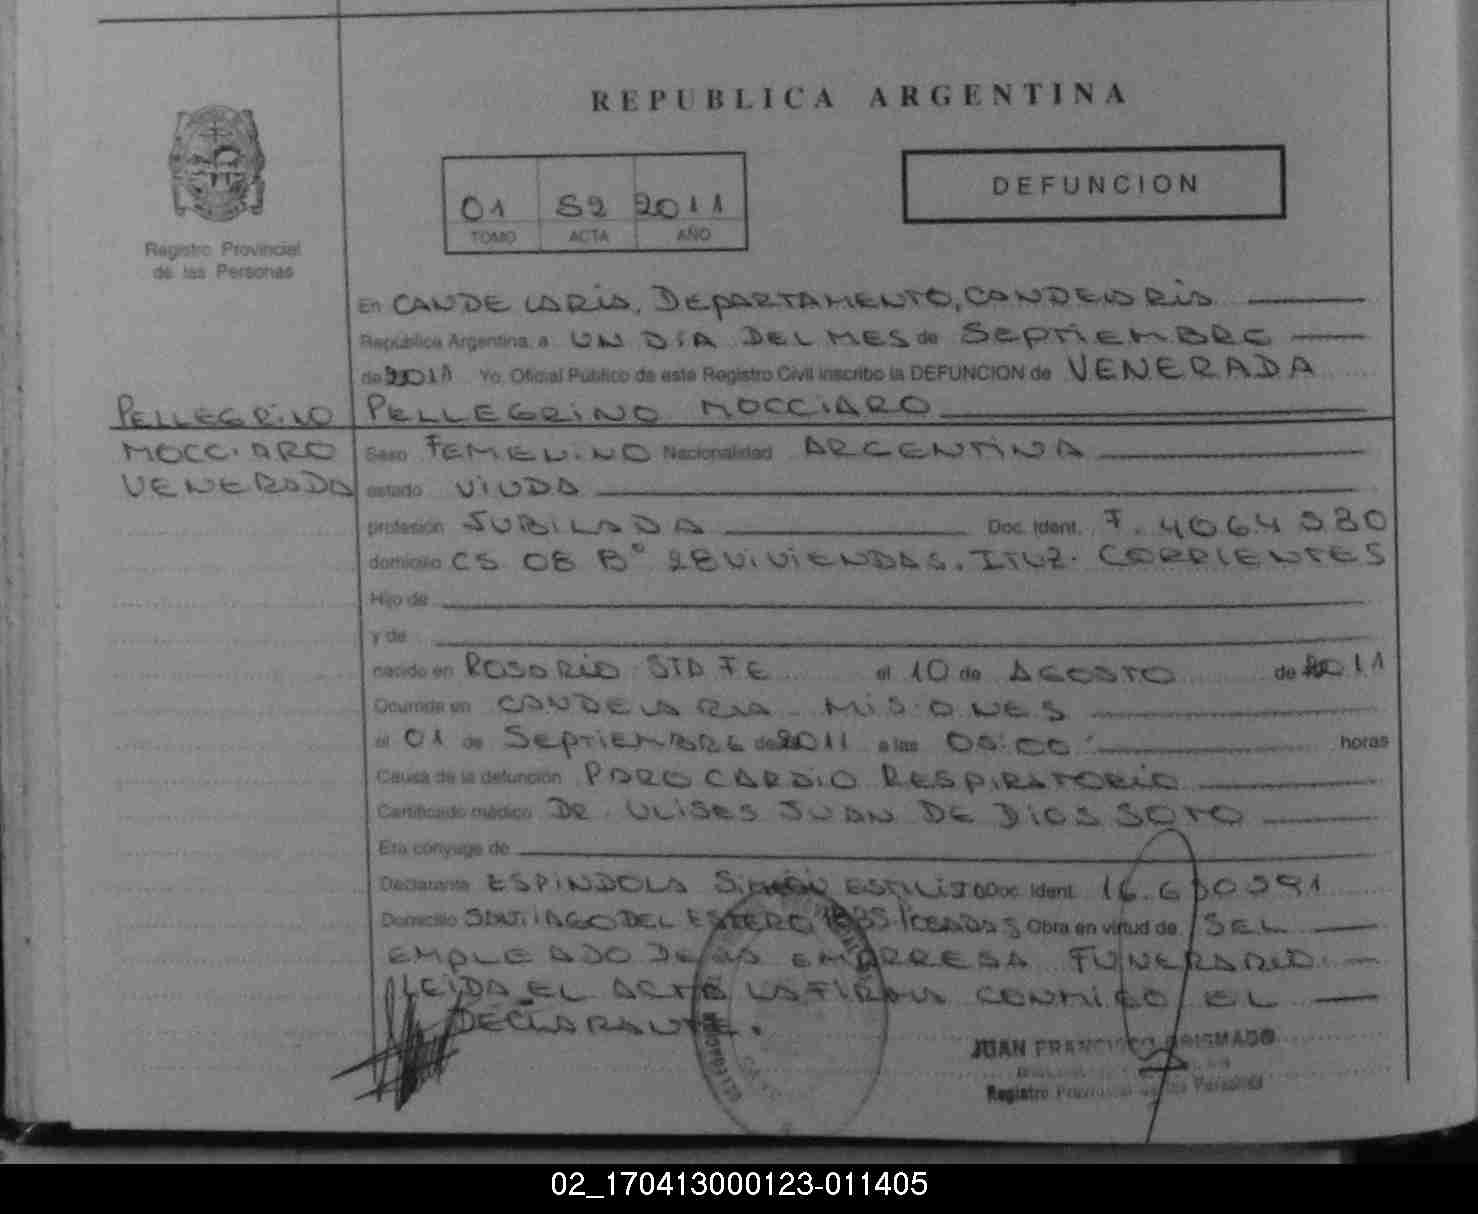 REPUBLICA ARGENTINA
DEFUNCION
01 S2 2011
TOMO ACTA AÑO
Registro Provincial
de las Personas
En CANDELARIA, DEPARTAMENTO, CANDELARIA
República Argentina, a UN DIA DEL MES de SEPTIEMBRE
de 2011 Yo, Oficial Público de este Registro Civil inscribo la DEFUNCION de VENERADA
PELLEGRINO MOCCIARO
PELLEGRINO
MOCCIARO
VENERADA
Sexo FEMENINO Nacionalidad ARGENTINA
estado VIUDA
profesión JUBILADA Doc. Ident. F. 4064980
domicilio CS 08 B° 28 VIVIENDAS. ITUZ. CORRIENTES
Hijo de
y de
nacido en ROSARIO STA FE el 10 de AGOSTO de 2011
Ocurrida en CANDELARIA MISIONES
el 01 de SEPTIEMBRE de 2011 a las 05:00 horas
Causa de la defunción PARO CARDIO RESPIRATORIO
Certificado médico DR. ULISES JUAN DE DIOS SOTO
Era cónyuge de
Declarante ESPINDOLA Doc. Ident. 16.630591
Domicilio SANTIAGO DEL ESTERO POSADAS Obra en virtud de SEL
EMPLEADO DE LA EMPRESA FUNERARIA
LEIDA EL ACTA LA FIRMA CONMIGO EL
DECLARANTE.
JUAN FRANCISCO
Registro Provincial de las Personas
02_170413000123-011405